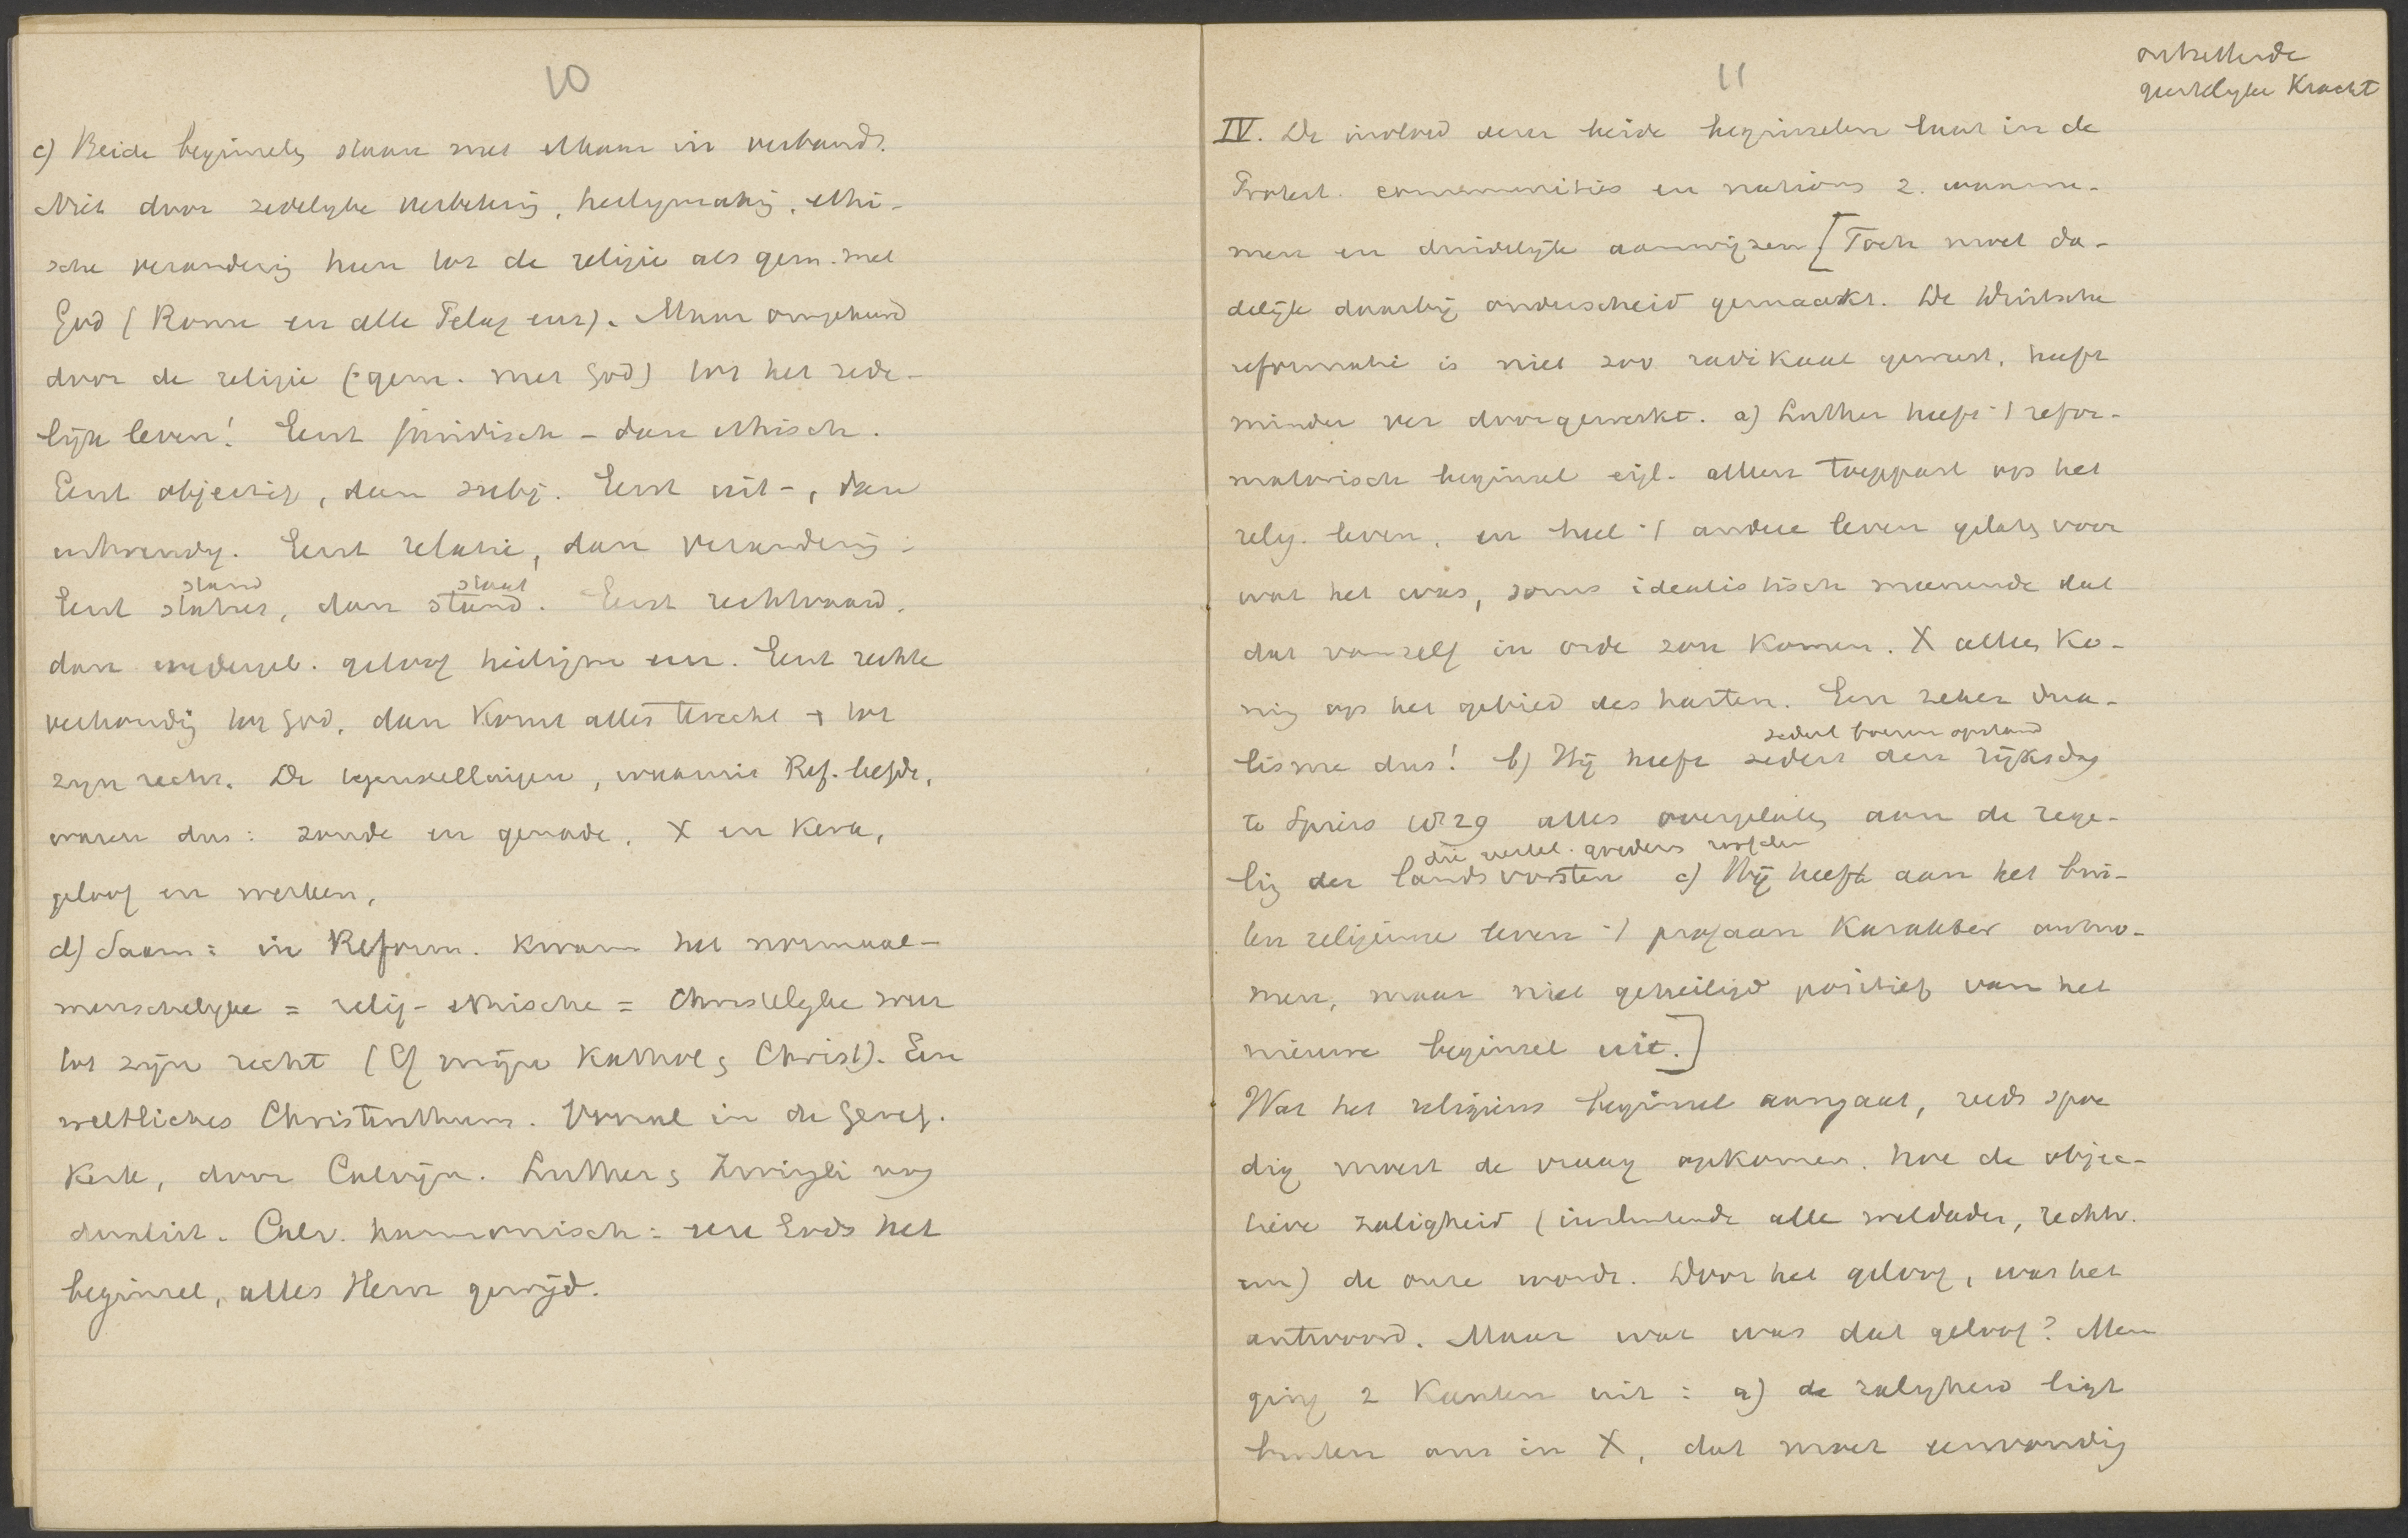 10
c) Beide beginselen staan met elkaar in verband.
Niet door zedelijke verbetering, heiligmaking, ethi-
sche verandering heen tot de religie als gem. met
God (Rome en alle Pelag. enz). Maar omgekeerd
door de religie (: gem. met God) tot het zede-
lijk leven! Eerst juridisch - dan ethisch.
Eerst objectief, dan subj. Eerst uit-, dan
inwendig. Eerst relatie, dan verandering.
stand staat
Eerst status, dan stand. Eerst rechtvaard.
dan wedergeb. geloof heiligm enz. Eerst rechte
verhouding tot God, dan komt alles terecht + tot
zijn recht. De tegenstellingen, waarin Ref. leefde,
waren dus: zonde en genade, X en Kerk,
geloof en werken,
d) Saam: in Reform. kwam het normaal-
menschelijke = relig-ethische = Christelijke weer
tot zijn recht (Cf mijn Kathol. & Christ). Een
weltliches Christenthum. Vooral in de Geref.
Kerk, door Calvijn. Luther & Zwingli nog
dualist. Calv. harmonisch: een Gods het
beginsel, alles Hem gewijd.
11
ontzettende
geestelijke Kracht
IV. De invloed dezer beide beginselen laat in de
Protest. communities en nations z. waarne-
men en duidelijk aanwijzen [Toch moet da-
delijk daarbij onderscheid gemaakt. De Duitsche
reformatie is niet zoo radikaal geweest, heeft
minder ver doorgewerkt. a) Luther heeft 't refor-
matorisch beginsel eigl. alleen toegepast op het
relig. leven, en heel 't andere leven gelaten voor
wat het was, soms idealistisch meenende dat
dat vanzelf in orde zou komen. X alleen Ko-
ning op het gebied des harten. Een zeker dua-
sedert boeren opstand
lisme dus! b) Hij heeft sedert den rijksdag
te Spiers 1529 alles overgelaten aan de rege-
die goederen
ling der landsvorsten c) Hij heeft aan het bui-
ten religieuse leven 't profaan karakter ontno-
men, maar niet geheiligd positief van het
nieuwe beginsel uit.]
Wat het religieus beginsel aangaat, reeds spoe
dig moest de vraag opkomen, hoe de objec-
tieve zaligheid (insluitende alle weldaden, rechtv.
enz) de onze wordt. Door het geloof, was het
antwoord. Maar wat was dat geloof? Men
ging 2 kanten uit: a) de zaligheid ligt
buiten ons in X, dat moet eenvoudig